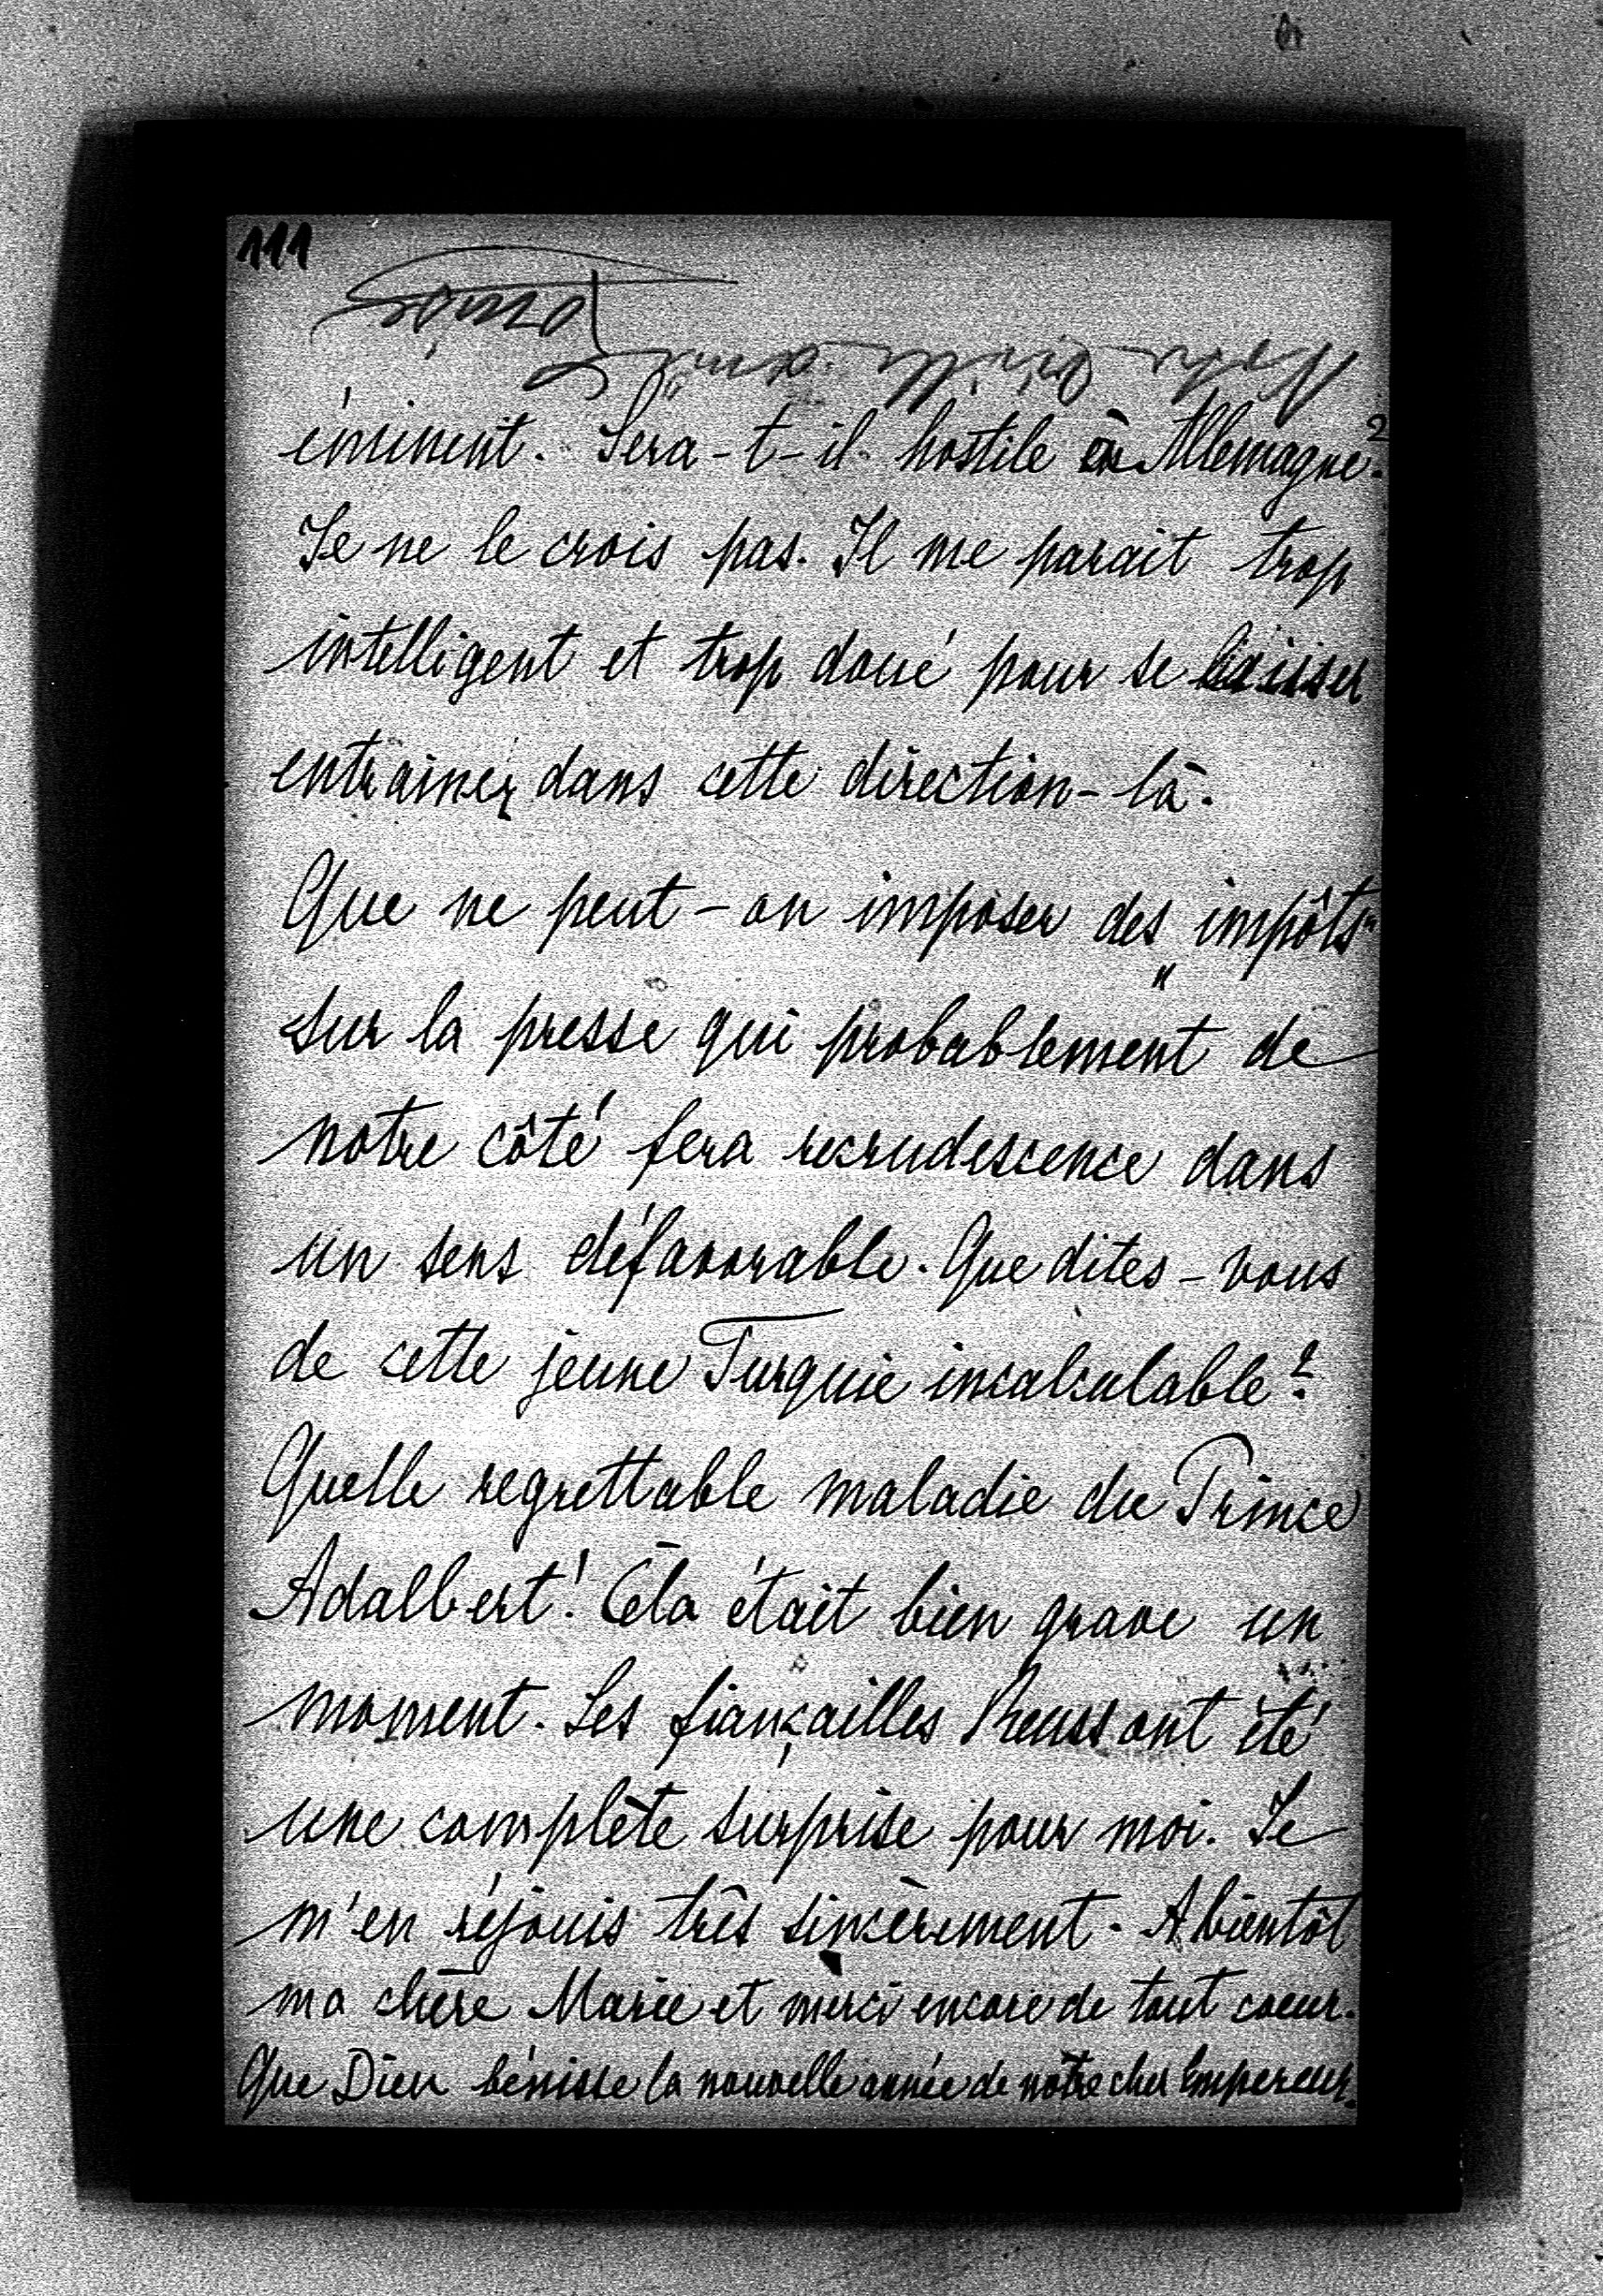 111
Votre vieille amie
éminent. Sera-t-il hostile à Allemagne?
Je ne le crois pas. Il me parait trop
intelligent et trop doué pour se laisser
entrainer dans cette direction-là.
Que ne peut-on imposer des „impôts"
sur la presse qui probablement de
notre côté fera recrudescence dans
un sens défavorable. Que dites-vous
de cette jeune Turquie incalculable?
Quelle regrettable maladie du Prince
Adalbert! Cela était bien grave un
moment. Les fiançailles Reuss ont été
une complète surprise pour moi. Je
m'en réjouis très sincèrement. A bientôt
ma chère Marie et merci encore de tout coeur.
Que Dieu bénisse la nouvelle année de nôtre cher Empereur.